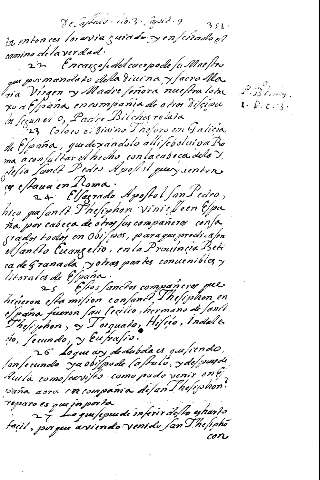 351
ta entonces los avia guiado, y enseñado el
camino de la verdad.
22 Encargose del cuerpo de su Maestro
que por mandato de la Divina y sacra Ma
ria Virgen y Madre señora nuestra lo tra
xo a España en compañia de otros discipu
los segun el P. Padre Bivar relata
23 Coloco el Divino Thesoro en Galicia
de España, que dexandolo alli se bolvio a Ro
ma a consultar el hecho con la cabeca de la
Iglesia sanct Pedro Apostol que ya enton
ces estava en Roma.
24 El sagrado Apostol san Pedro,
hiço que sanct Thesiphon viniese en Espa
ña, por cabeca de otros sus compañeros consa
grados todos en Obispos, para que predicasen
el sancto Evangelio, en la Provincia Beti
ca de Granada, y otras partes convenibles y
litorales de España.
25 Estos sanctos compañeros que
hicieron esta mision con sanct Thesiphon en
españa fueron san Cecilio, hermano de sanct
Thesiphon, y Torquato, Hiscio, Indale
cio, secundo, y Eufrasio.
26 Lo que ay de dubda es que siendo
san secundo ya obispo de Castulo, y despues
de Avila como se a visto como pudo venir en Es
paña aora en compañia de san Thesiphon:
reparo es que importa.
27 Lo que se puede inferir desto es harto
facil, porque aviendo venido san Thesiphõ
con